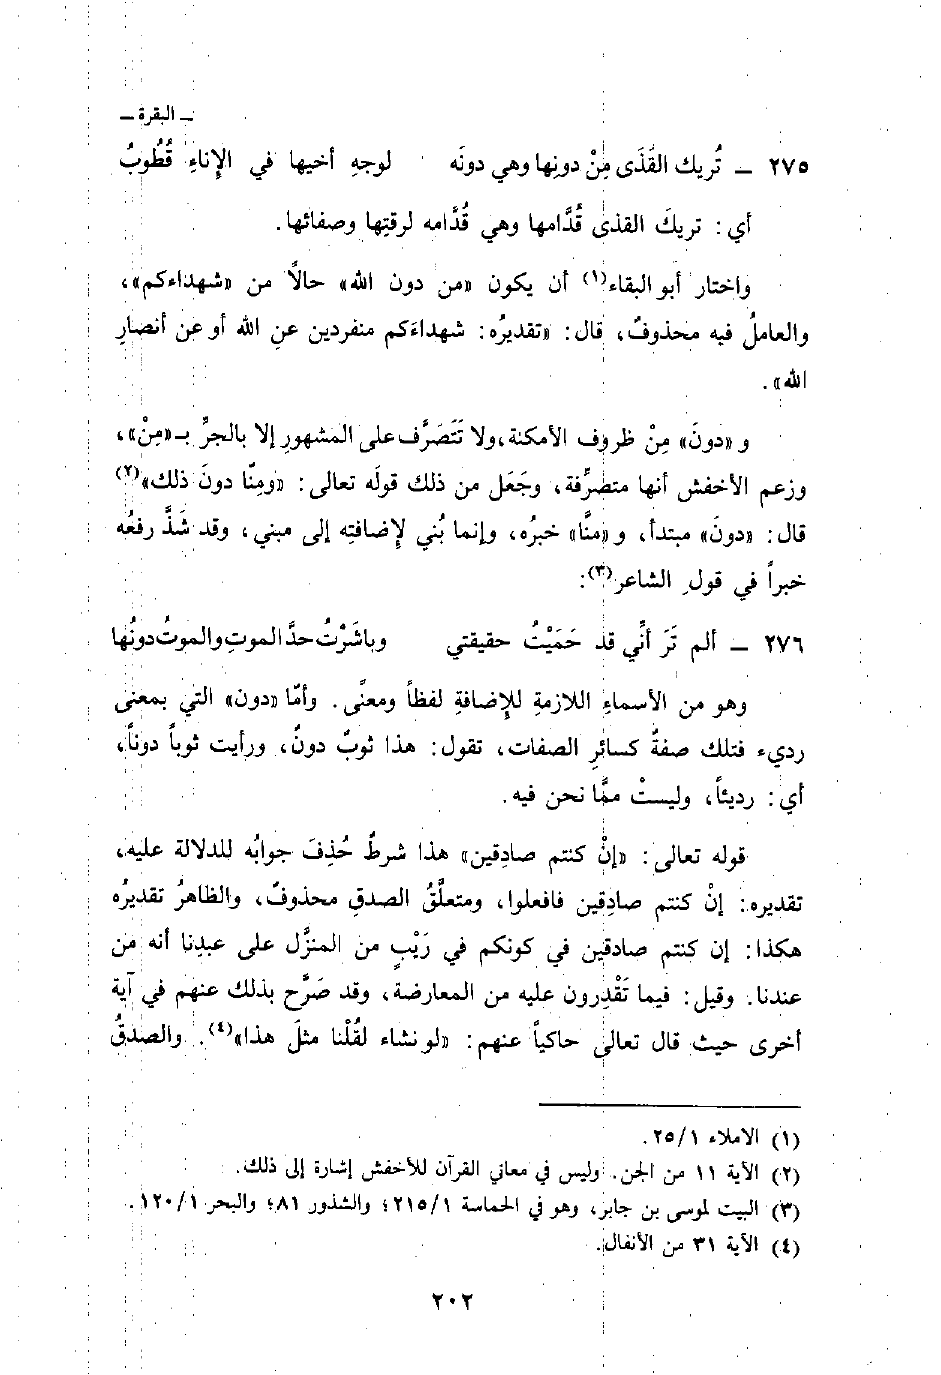 ـ البقرة ـ
٢٧٥ ـ تُريك القَذَى مِنْ دونِها وهي دونَه لوجهِ أخيها في الإِناءِ قُطُوبُ
أي: تريكَ القذى قُدَّامها وهي قُدَّامه لرقتِها وصفائها.
واختار أبو البقاء(١) أن يكون «من دون الله» حالاً من «شهداءكم»،
والعاملُ فيه محذوفٌ، قال: «تقديرُه: شهداءَكم منفردين عنِ الله أو عن أنصارِ
الله».
و «دونَ» مِنْ ظروف الأمكنة، ولا تَتَصَرَّف على المشهورِ إلا بالجرِّ بـ«مِنْ»،
وزعم الأخفش أنها متصرِّفة، وجَعَل من ذلك قولَه تعالى: «ومِنَّا دونَ ذلك»(٢)
قال: «دونَ» مبتدأ، و «مِنَّا» خبرُه، وإنما بُني لإِضافتِه إلى مبني، وقد شَذَّ رفعُه
خبراً في قولِ الشاعر(٣):
٢٧٦ ـ ألم تَرَ أنِّي قد حَمَيْتُ حقيقتي وباشَرْتُ حدَّ الموتِ والموتُ دونُها
وهو من الأسماءِ اللازمةِ للإِضافةِ لفظاً ومعنًى. وأمَّا «دون» التي بمعنى
رديء فتلك صفةٌ كسائرِ الصفات، تقول: هذا ثوبٌ دونٌ، ورأيت ثوباً دوناً،
أي: رديئاً، وليستْ ممَّا نحن فيه.
قوله تعالى: «إنْ كنتم صادِقين» هذا شرطٌ حُذِفَ جوابُه للدلالة عليه،
تقديره: إنْ كنتم صادِقين فافعلوا، ومتعلَّقُ الصدقِ محذوفٌ، والظاهرُ تقديرُه
هكذا: إن كنتم صادقين في كونكم في رَيْبٍ من المنزَّل على عبدِنا أنه من
عندنا. وقيل: فيما تَقْدِرون عليه من المعارضة، وقد صَرَّح بذلك عنهم في آية
أخرى حيث قال تعالى حاكياً عنهم: «لو نشاء لقُلْنا مثلَ هذا»(٤). والصدقُ
(١) الاملاء ٢٥/١.
(٢) الآية ١١ من الجن. وليس في معاني القرآن للأخفش إشارة إلى ذلك.
(٣) البيت لموسى بن جابر، وهو في الحماسة ٢١٥/١؛ والشذور ٨١؛ والبحر ١٢٠/١.
(٤) الآية ٣١ من الأنفال.
٢٠٢